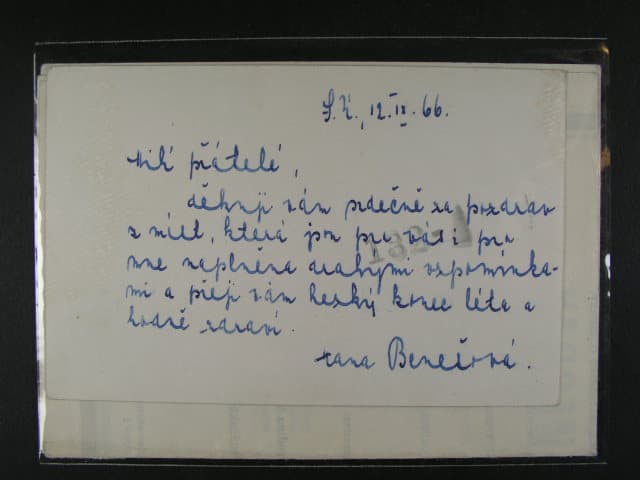 S. Ú., 12. IX. 66.
Milí přátelé,
děkuji vám srdečně za pozdrav
z míst, která jsou pro vás i pro
mne naplněna drahými vzpomínka-
mi a přeji vám hezký konec léta a
hodně zdraví.
Hana Benešová.